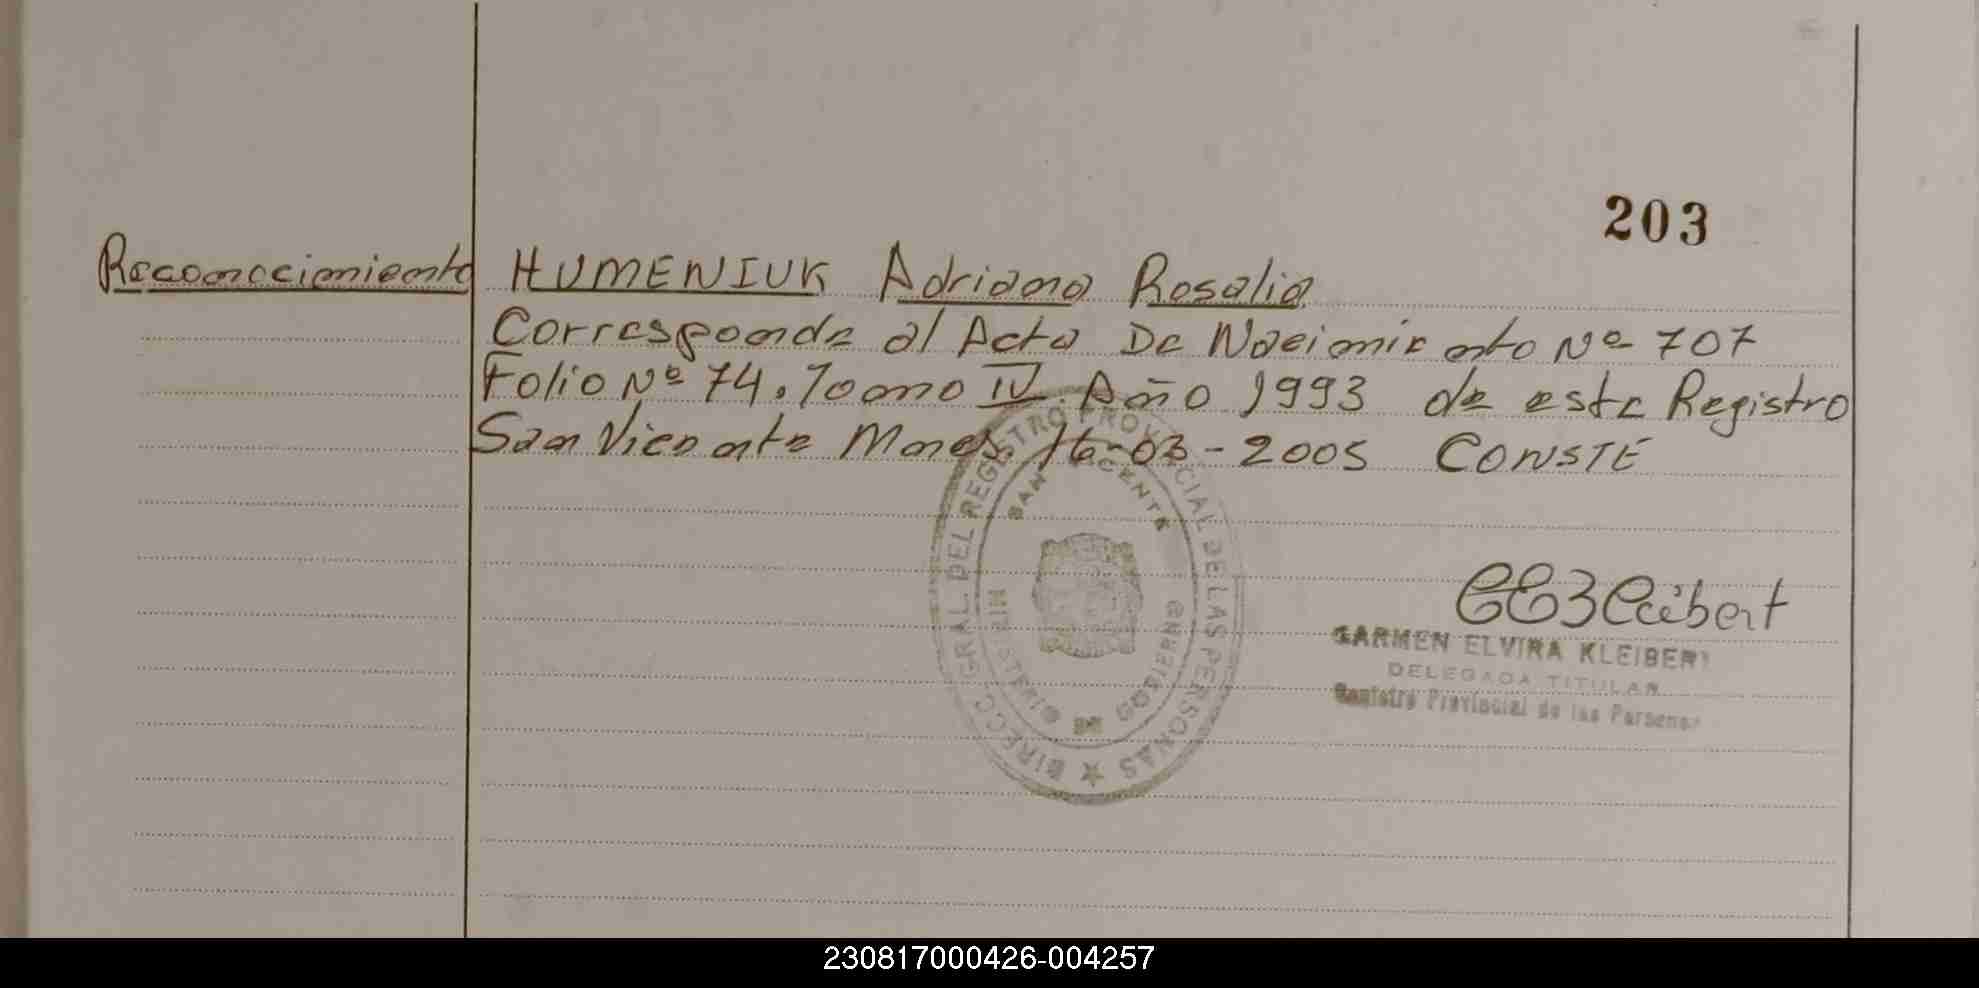 203
Reconocimiento HUMENIUK Adriana Rosalia
Corresponde al Acta De Nacimiento Nº 707
Folio Nº 74. Tomo IV. Año 1993 de este Registro
San Vicente Mnes. 16-03-2005 CONSTE
DIRECC. GRAL. DEL REGISTRO PROVINCIAL DE LAS PERSONAS ★
SAN VICENTE
MINISTERIO DE GOBIERNO
CEKleibert
CARMEN ELVIRA KLEIBERT
DELEGADA TITULAR
Registro Provincial de las Personas
230817000426-004257